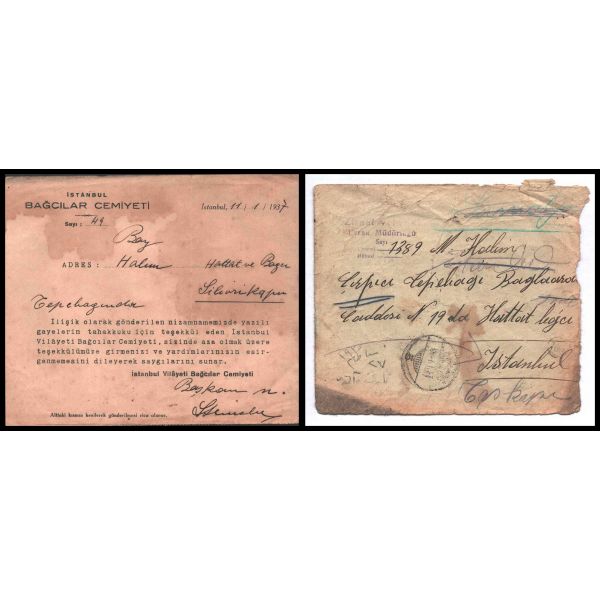 İSTANBUL
BAĞCILAR CEMİYETİ
Sayı : 49
İstanbul, 11 / 1 / 1937
Bay
ADRES : Halim Hattat ve Bağcı
Silivrikapu
Tepebağında
İlişik olarak gönderilen nizamnamemizde yazılı
gayelerin tahakkuku için teşekkül eden İstanbul
Vilâyeti Bağcılar Cemiyeti, sizinde aza olmak üzere
teşekkülümüze girmenizi ve yardımlarınızın esir-
ganmemesini dileyerek saygılarını sunar.
İstanbul Vilâyeti Bağcılar Cemiyeti
Başkan n.
Alttaki kısmın kesilerek gönderilmesi rica olunur.
Müdürlüğü
Sayı
1389 M. Halim
Çırpıcı
Caddesi N 19 da Hattat
İstanbul
Topkapu